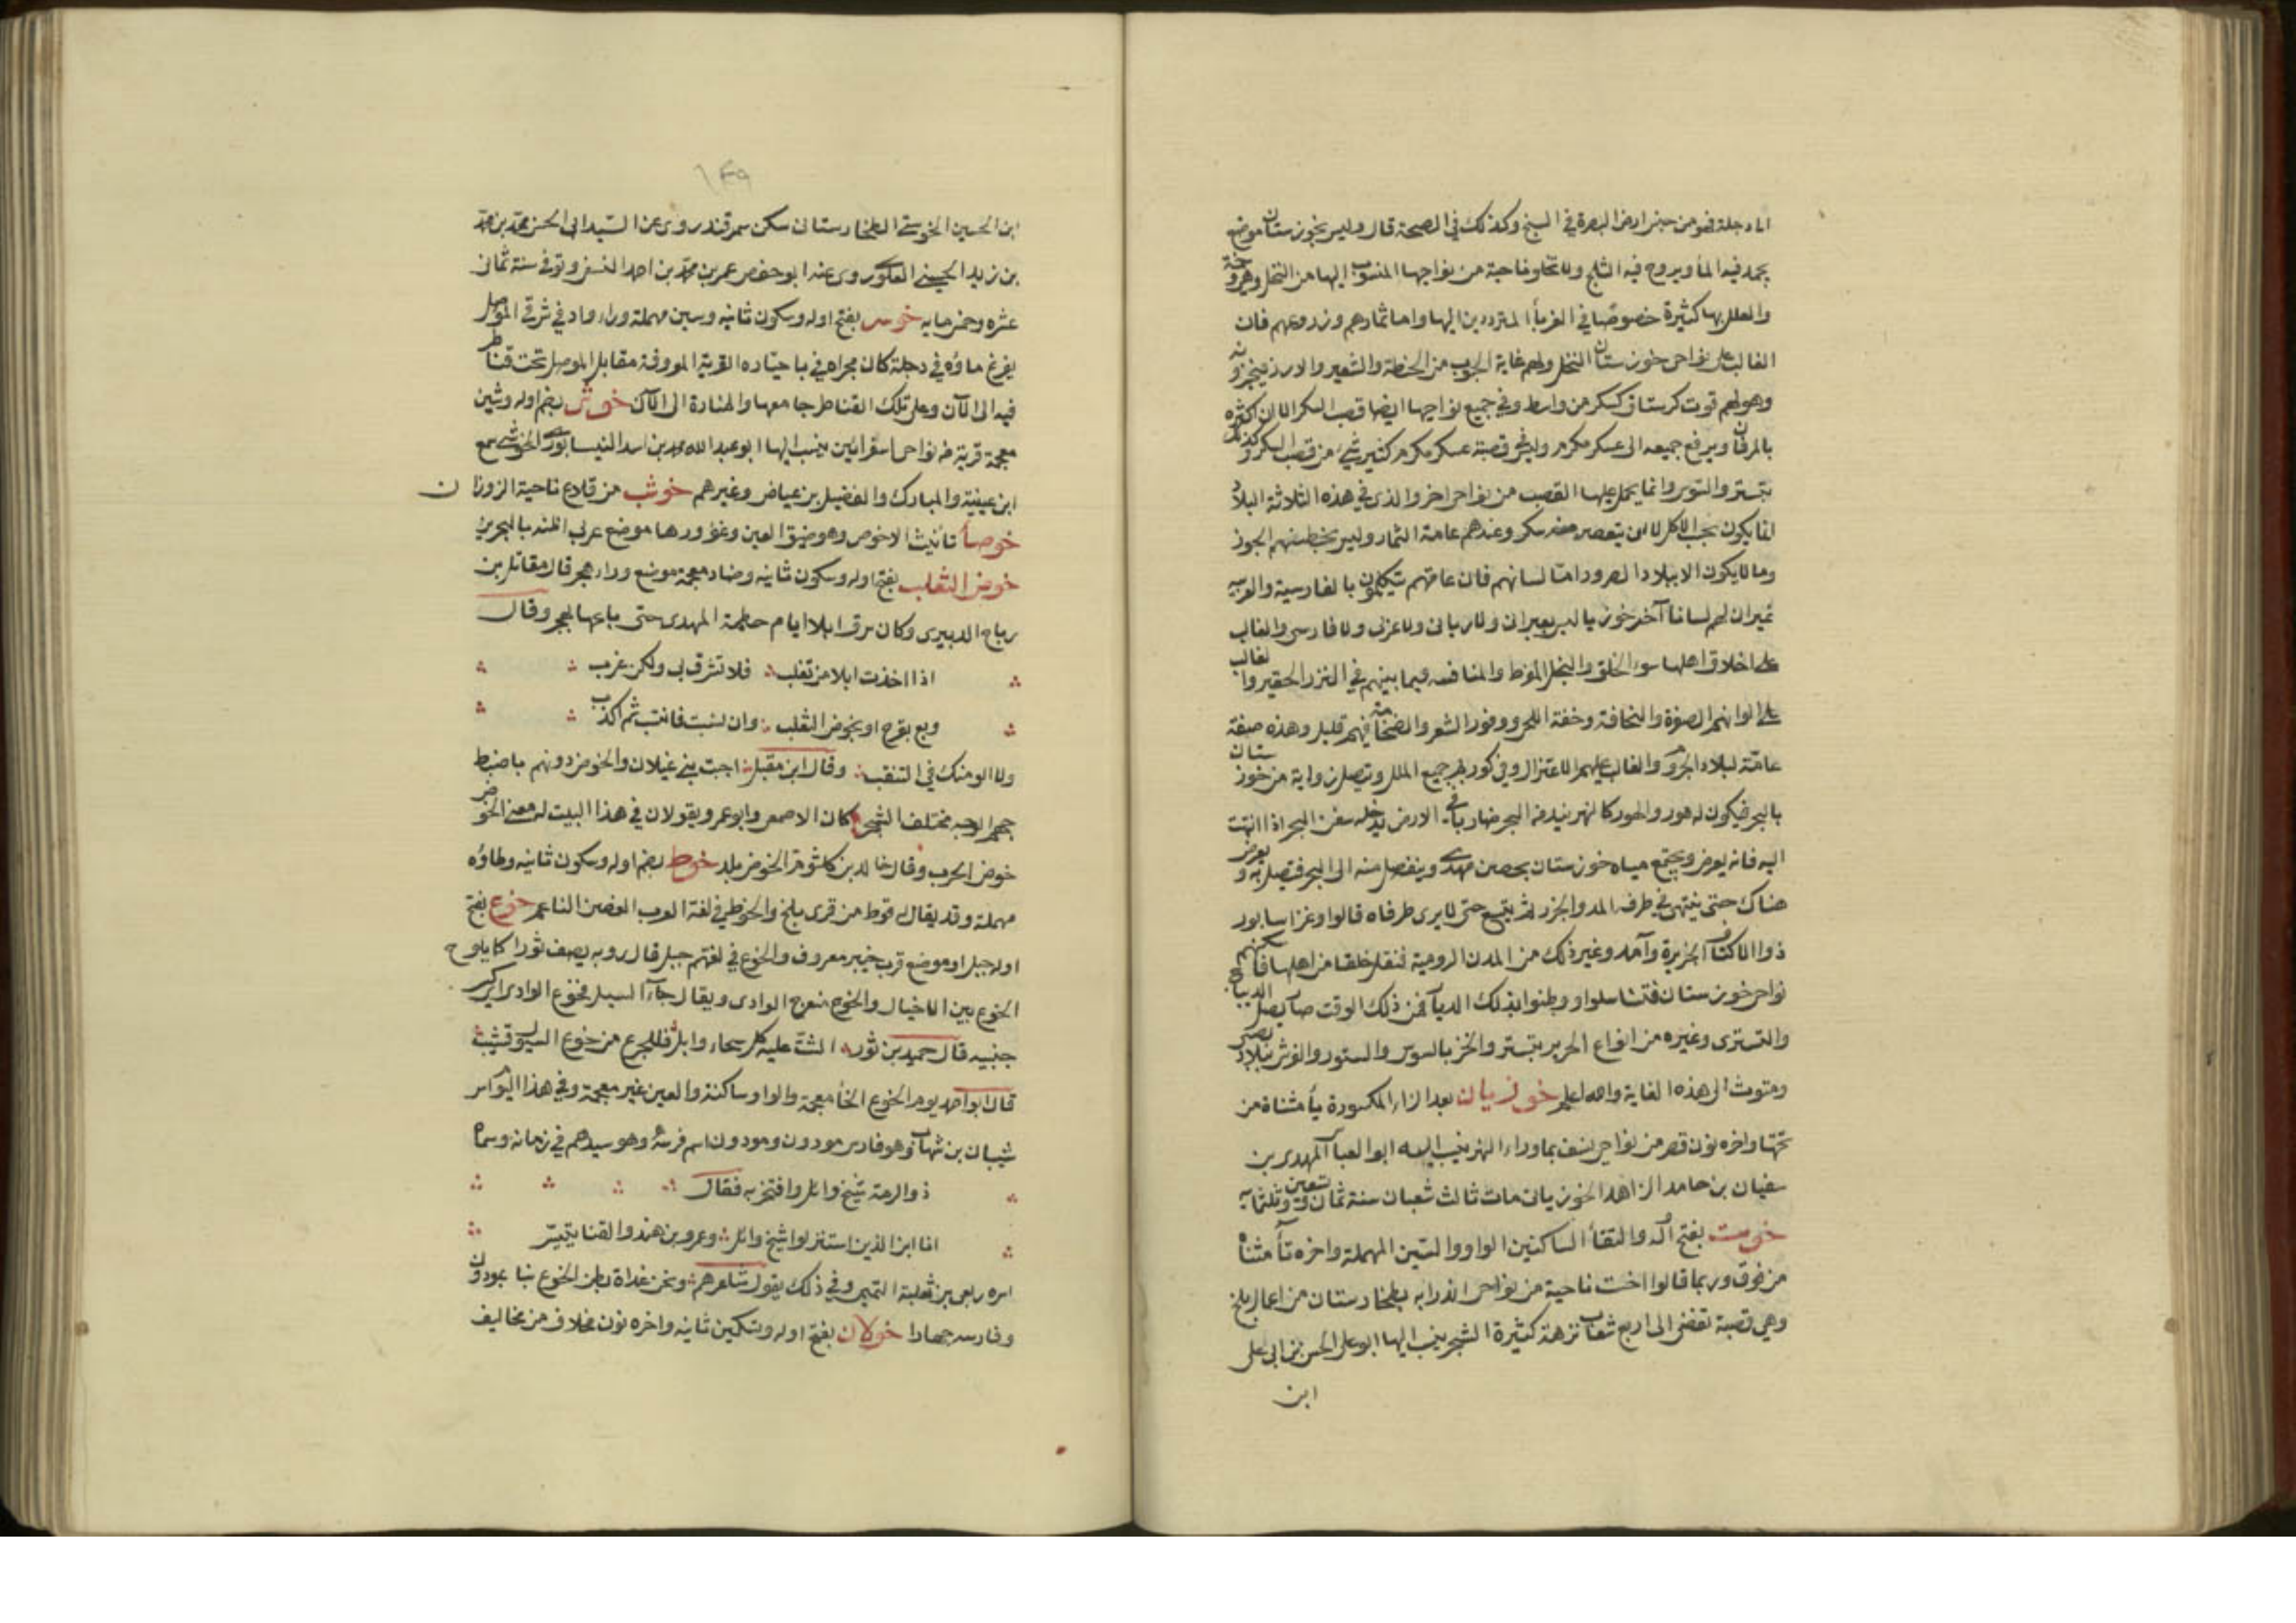 الماء دجلة فهو من جنس ارض البصرة في السبخ وكذلك في الصحة قال وليس بخوزستان موضع
يجمد فيه الماء ويروح فيه الثلج ولا تخلو ناحية من نواحيها المنسوب اليها من النخل وهي وخمة
والعلل بها كثيرة خصوصا في الغرباء المترددين اليها واما ثمارهم وزروعهم فان
الغالب على نواحي خوزستان النخل ولهم غاية الحبوب من الحنطة والشعير والارز فيخبزونه
وهو لهم قوت كرستاق كسكر من واسط وفي جميع نواحيها ايضا قصب السكر الا ان اكثره
بالمرقان ويرفع جميعه الى عسكر مكرم وليس في قصبة عسكر مكرم كثير شيء من قصب السكر وكذلك
بتستر والسوس وانما يحمل عليها القصب من نواحي اخر والذي في هذه الثلاثة البلاد
انما يكون بحسب الاكل لا ان يتعصر منه سكر وعندهم عامة الثمار وليس يخطئهم الجوز
وما لا يكون الا ببلاد الصرود اما لسانهم فان عامتهم يتكلمون بالفارسية والعربية
غير ان لهم لسانا آخر خوزيا ليس بعبراني ولا سرياني ولا عربي ولا فارسي والغالب
على اخلاق اهلها سوء الخلق والبخل المفرط والمنافسة فيما بينهم في النزر الحقير والغالب
على الوانهم الصفرة والنحافة وخفة اللحى ووفور الشعر والضخامة فيهم قليل وهذه صفة
عامة لبلاد الجروم والغالب عليهم الاعتزال وفي كورهم جميع الملل وتتصل زاوية من خوزستان
بالبحر فيكون له هور والهور كالنهر يند من البحر ضاربا في الارض يدخله سفن البحر اذا انتهت
اليه فانه يعرض ويجتمع مياه خوزستان بحصن مهدي وينفصل منه الى البحر فيتصل به ويعرض
هناك حتى ينتهي في طرفه المد والجزر ثم يتسع حتى لا يرى طرفاه قالوا وغزا سابور
ذو الاكتاف الجزيرة وآمد وغير ذلك من المدن الرومية فنقل خلقا من اهلها فاسكنهم
نواحي خوزستان فتناسلوا ووطنوا بذلك الديار فمن ذلك الوقت صار يصل الديباج
والتستري وغيره من انواع الحرير بتستر والخز بالسوس والستور والفرش ببلاد بصنى
ومتوث الى هذه الغاية والله اعلم خوزيان بعد الزاء المكسورة ياء مثناة من
تحتها واخره نون قصر من نواحي نسف بما وراء النهر ينسب اليه ابو العباس المهدي بن
سفيان بن حامد الزاهد الخوزياني مات ثالث شعبان سنة ثمان وتسعين وثلثمائة
خوست بفتح اوله والتقاء الساكنين الواو والسين المهملة واخره تاء مثناة
من فوق وربما قالوا اخست ناحية من نواحي اندرابه بطخارستان من اعمال بلخ
وهي قصبة تفضي الى اربع شعاب نزهة كثيرة الشجر ينسب اليها ابو علي الحسن بن ابي علي
ابن
١٤٩
ابن الحسين الخوستي الطخارستاني سكن سمرقند روى عن السيد ابي الحسن محمد بن محمد
بن زيد الحسيني العلوي روى عنه ابو حفص عمر بن محمد بن احمد النسفي وتوفي سنة ثماني
عشره وخمسمايه خوسر بفتح اوله وسكون ثانيه وسين مهملة وراء واد في شرقي الموصل
يفرغ ماؤه في دجلة كان مجراه في باجباره القرية المعروفة مقابل الموصل تحت قناطر
فيه الى الآن وعلى تلك القناطر جامعها والمنارة الى الآن خوش بضم اوله وشين
معجمة قرية من نواحي اسفرايين ينسب اليها ابو عبد الله محمد بن اسد النيسابوري الخوشي سمع
ابن عيينة والمبارك والفضيل بن عياض وغيرهم خوشب من قلاع ناحية الزوزان
خوصاء تانيث الاخوص وهو ضيق العين وغؤورها موضع عربي اظنه بالبحرين
خوض الثعلب بفتح اوله وسكون ثانيه وضاد معجمة موضع وراء هجر قال مقاتل بن
رباح الدبيري وكان سرق ابلا ايام حطمة المهدي حتى باعها بهجر وقال
اذا اخذت ابلا من تغلب فلا تشرق بي ولكن غرب
وبع بقرح او بخوض الثعلب وان نسبت فانتسب ثم اكذب
ولا الومنك في التنقب وقال ابن مقبل اجبت بني غيلان والخوض دونهم باضبط
جهم الوجه مختلف الشجر كان الاصمعي وابو عمرو يقولان في هذا البيت له معنى الخوض
خوض الحرب وقال خالد بن كلثوم الخوض بلد خوط بضم اوله وسكون ثانيه وطاؤه
مهملة وقد يقال له قوط من قرى بلخ والخوط في لغة العرب الغصن الناعم خوع بفتح
اوله جبل او موضع قرب خيبر معروف والخوع في لغتهم جبل قال روبه يصف ثورا كما يلوح
الخوع بين الاخيال والخوع منعرج الوادي ويقال جاء السيل فخوع الوادي اي كسر
جنبيه قال حميد بن ثور الثت عليه كل سحاء وابل فللجزع من خوع السيول قشيب
قال ابو احمد يوم الخوع الخاء معجمة والواو ساكنة والعين غير معجمة وفي هذا اليوم اسر
شيبان بن شهاب وهو فارس مودون ومودون اسم فرسه وهو سيدهم في زمانه وسماه
ذو الرمة شيخ وائل وافتخر به فقال
انا ابن الذين استنزلوا شيخ وائل وعمرو بن هند والقنا يتكسر
اسره ربعي بن ثعلبة التميمي وفي ذلك يقول شاعرهم ونحن غداة بطن الخوع ابنا بمودون
وفارسه جهارا خولان بفتح اوله وتسكين ثانيه واخره نون مخلاف من مخاليف